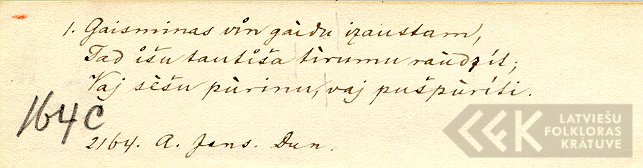 1. Gaisminas vin gàidu izaustam,
Tad išu tautiša tìrumu ràudzít;
Vaj sèšu pùrinu, vaj pušpùríti.
164C
2164. A. Jans. Dun.
LATVIEŠU
FOLKLORAS
KRĀTUVE